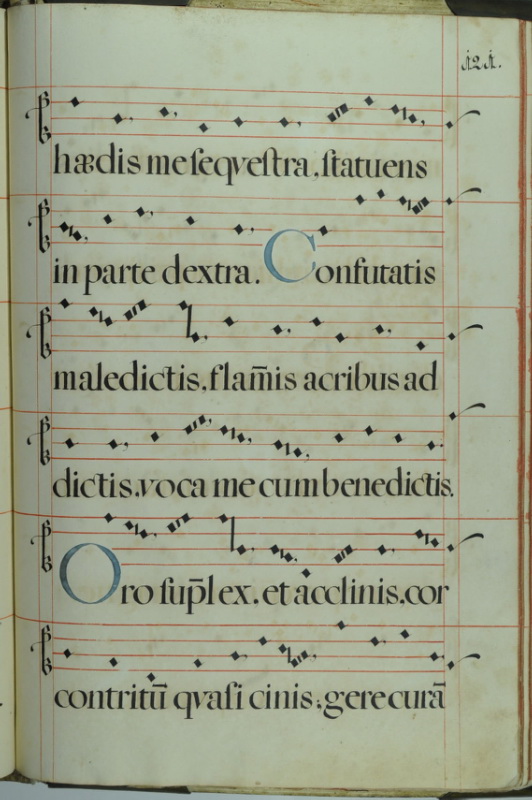 121.
hædis me seqvestra, statuens
in parte dextra. Confutatis
maledictis, flam̄is acribus ad
dictis, voca me cum benedictis.
Oro sup̄lex. et acclinis, cor
contritū qvasi cinis: gere curā